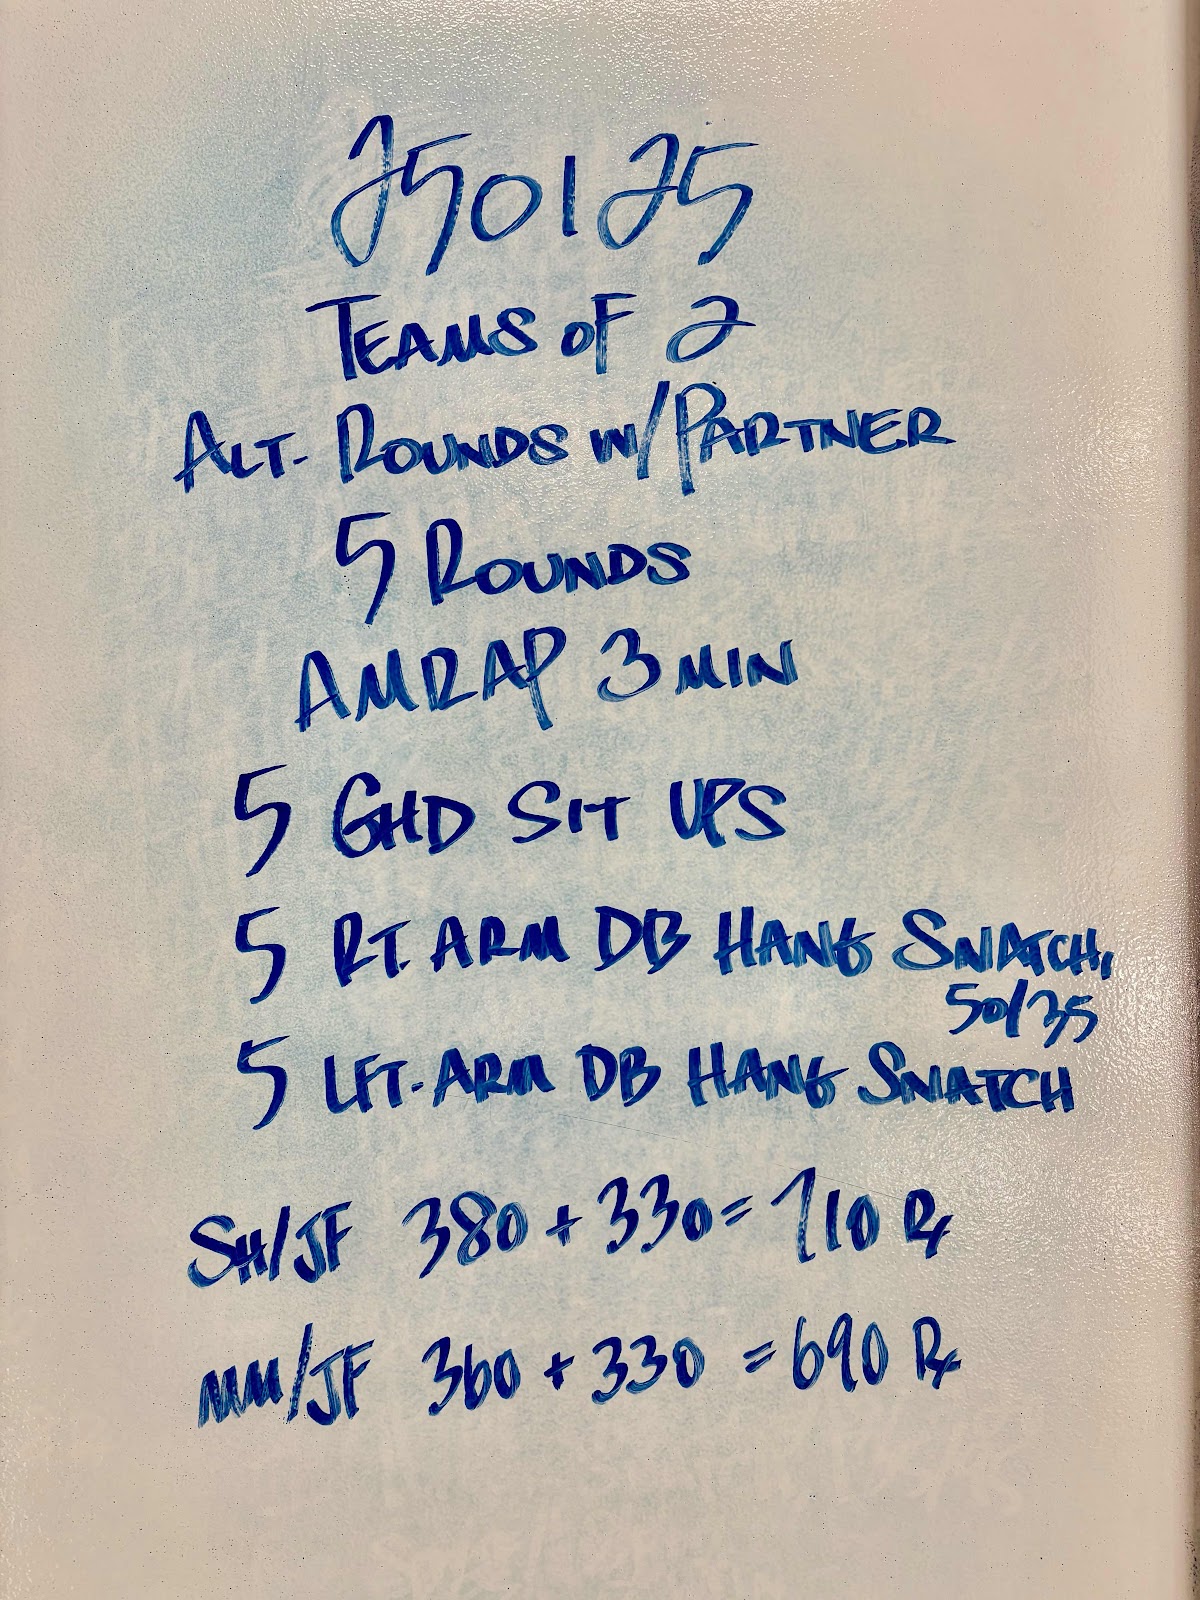 250125
TEAMS OF 2
ALT. ROUNDS W/PARTNER
5 ROUNDS
AMRAP 3 MIN
5 GHD SIT UPS
5 RT. ARM DB HANG SNATCH,
50/35
5 LFT. ARM DB HANG SNATCH
SH/JF 380 + 330 = 710 Rx
MM/JF 360 + 330 = 690 Rx